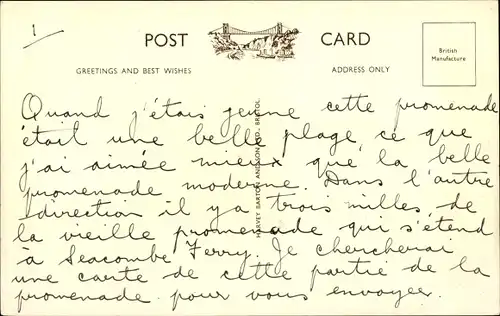 1
POST CARD
GREETINGS AND BEST WISHES
ADDRESS ONLY
British
Manufacture
Quand j'étais jeune cette promenade
était une belle plage, ce que
j'ai aimée mieux que la belle
promenade moderne. Dans l'autre
direction il y a trois milles de
la vieille promenade qui s'étend
à Seacombe Ferry. Je chercherai
une carte de cette partie de la
promenade pour vous envoyer.
HARVEY BARTON AND SON LTD., BRISTOL